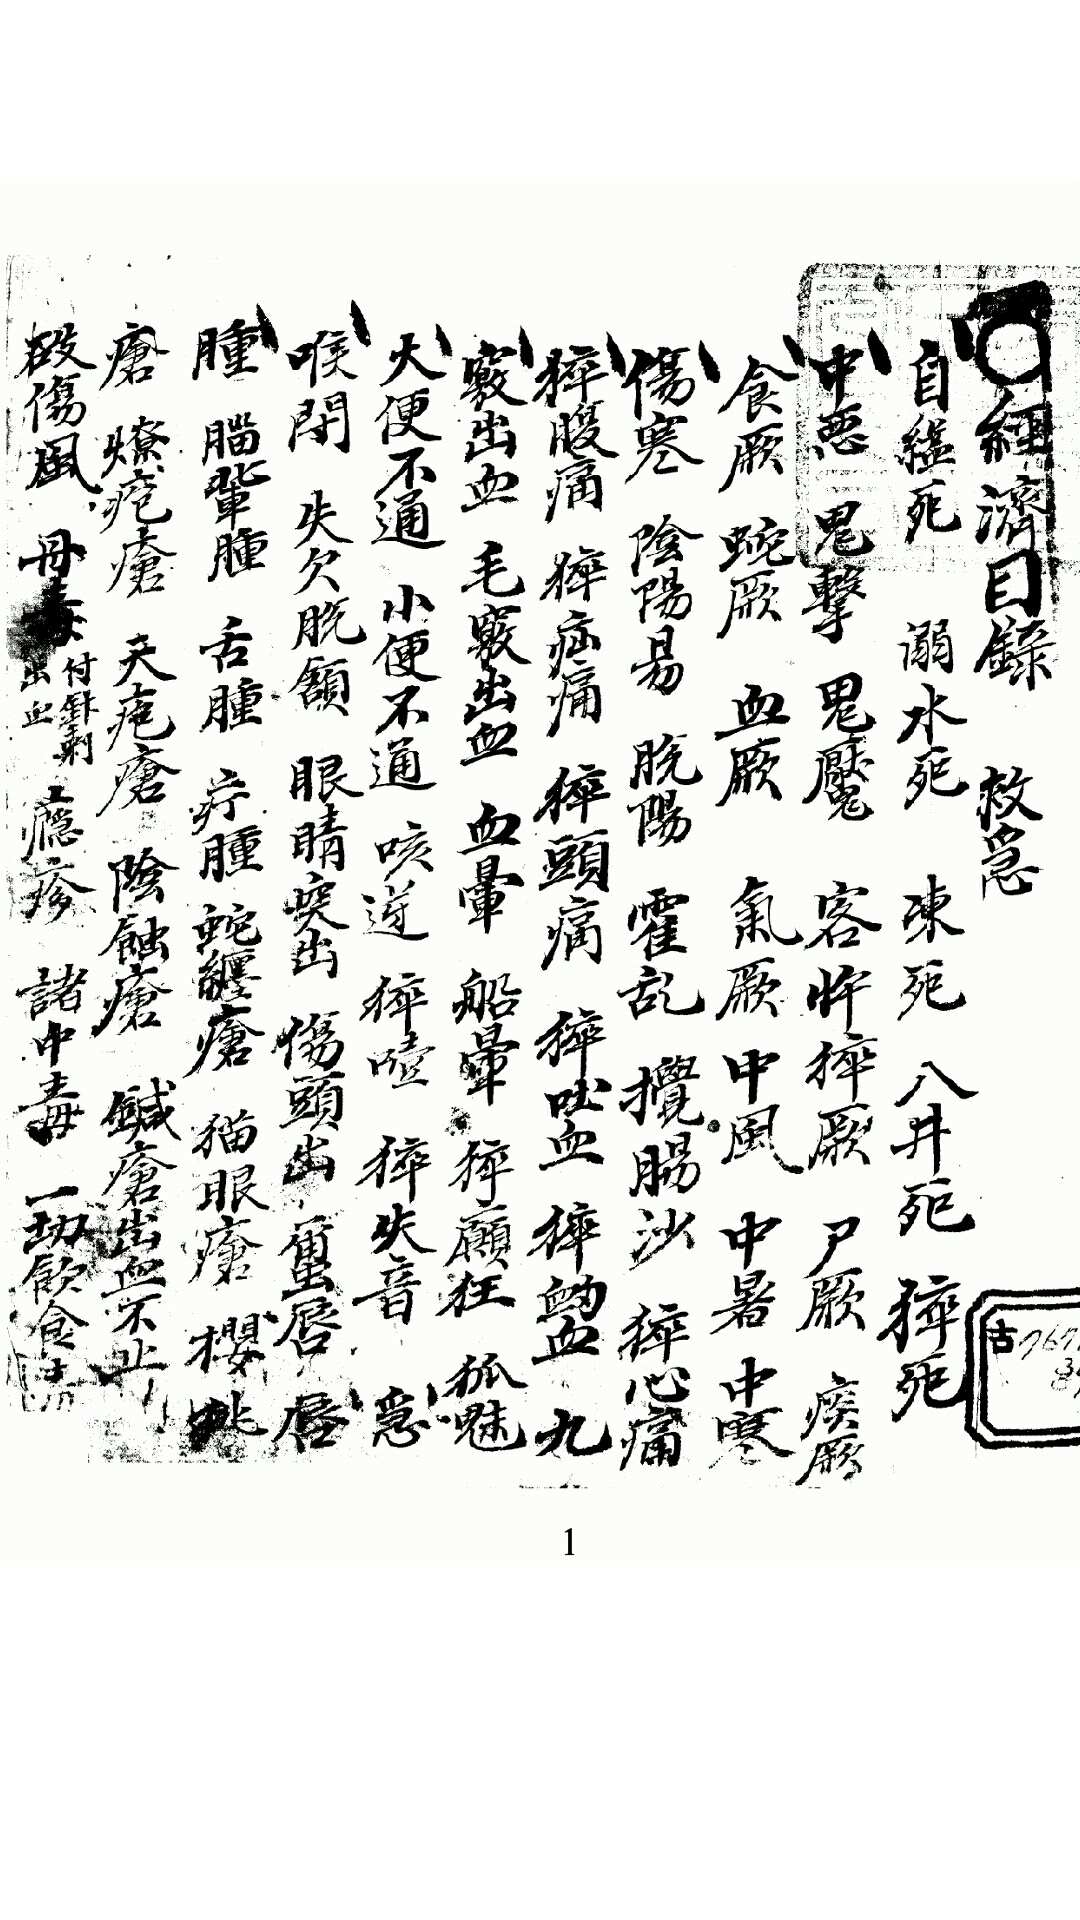 ○經濟目錄 救急
自縊死 溺水死 凍死 入井死 猝死
中惡 鬼擊 鬼魘 客忤猝厥 尸厥 痰厥
食厥 蚘厥 血厥 氣厥 中風 中暑 中寒
傷寒 陰陽易 脫陽 霍乱 攪腸沙 猝心痛
猝腹痛 猝疝痛 猝頭痛 猝吐血 猝衂血 九
竅出血 毛竅出血 血暈 船暈 猝癲狂 狐魅
大便不通 小便不通 咳逆 猝噎 猝失音 急
喉閉 失欠脫頷 眼睛突出 傷頭出 繭唇 唇
腫 腦輩腫 舌腫 疔腫 蛇纏瘡 猫眼瘡 櫻桃
瘡 燎疱瘡 天疱瘡 陰蝕瘡 鍼瘡出血不止
破傷風 丹毒 付針刺出血 癮疹 諸中毒 一切飮食毒
古7671
1